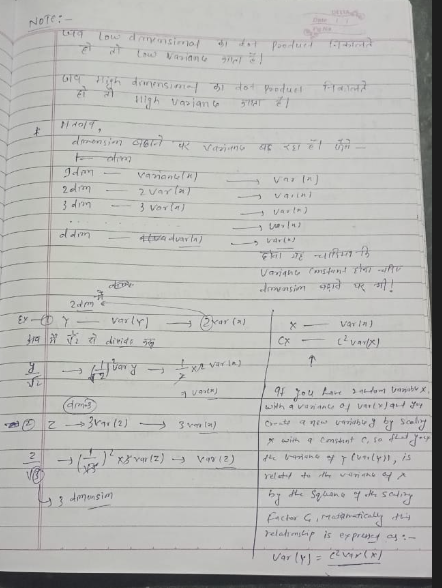 NOTE:-
जब Low dimensional का dot Product निकालते
हो तो Low Variance आता है।
जब High dimensional का dot Product निकालते
हो तो High Variance आता है।
dimension बढ़ाने पर Variance बढ़ रहा है।
1 dim — Variance(x) → Var(x)
2 dim — 2 Var(x) → Var(x)
3 dim — 3 Var(x) → Var(x)
...
→ Var(x)
d dim — dVar(x) → Var(x)
Variance constant
dimension बढ़ाने पर भी।
2 dim में
Ex → ① Y — Var(Y) → 2 Var(x)
√2 से divide
Y/√2 → (1/√2)² Var Y → 1/2 × 2 Var(x)
Var(x)
② Z → 3 Var(x)
Z/√3 → (1/√3)² × 3 Var(Z) → Var(Z)
3 dimension
X — Var(x)
CX — C² Var(x)
↑
If you have random variable X,
with a variance of Var(x) and you
create a new variable Y by scaling
X with a constant C, so that
the variance of Y (Var(Y)), is
related to the variance of X
by the square of the scaling
factor C, Mathematically this
relationship is expressed as:-
Var(Y) = C² Var(X)